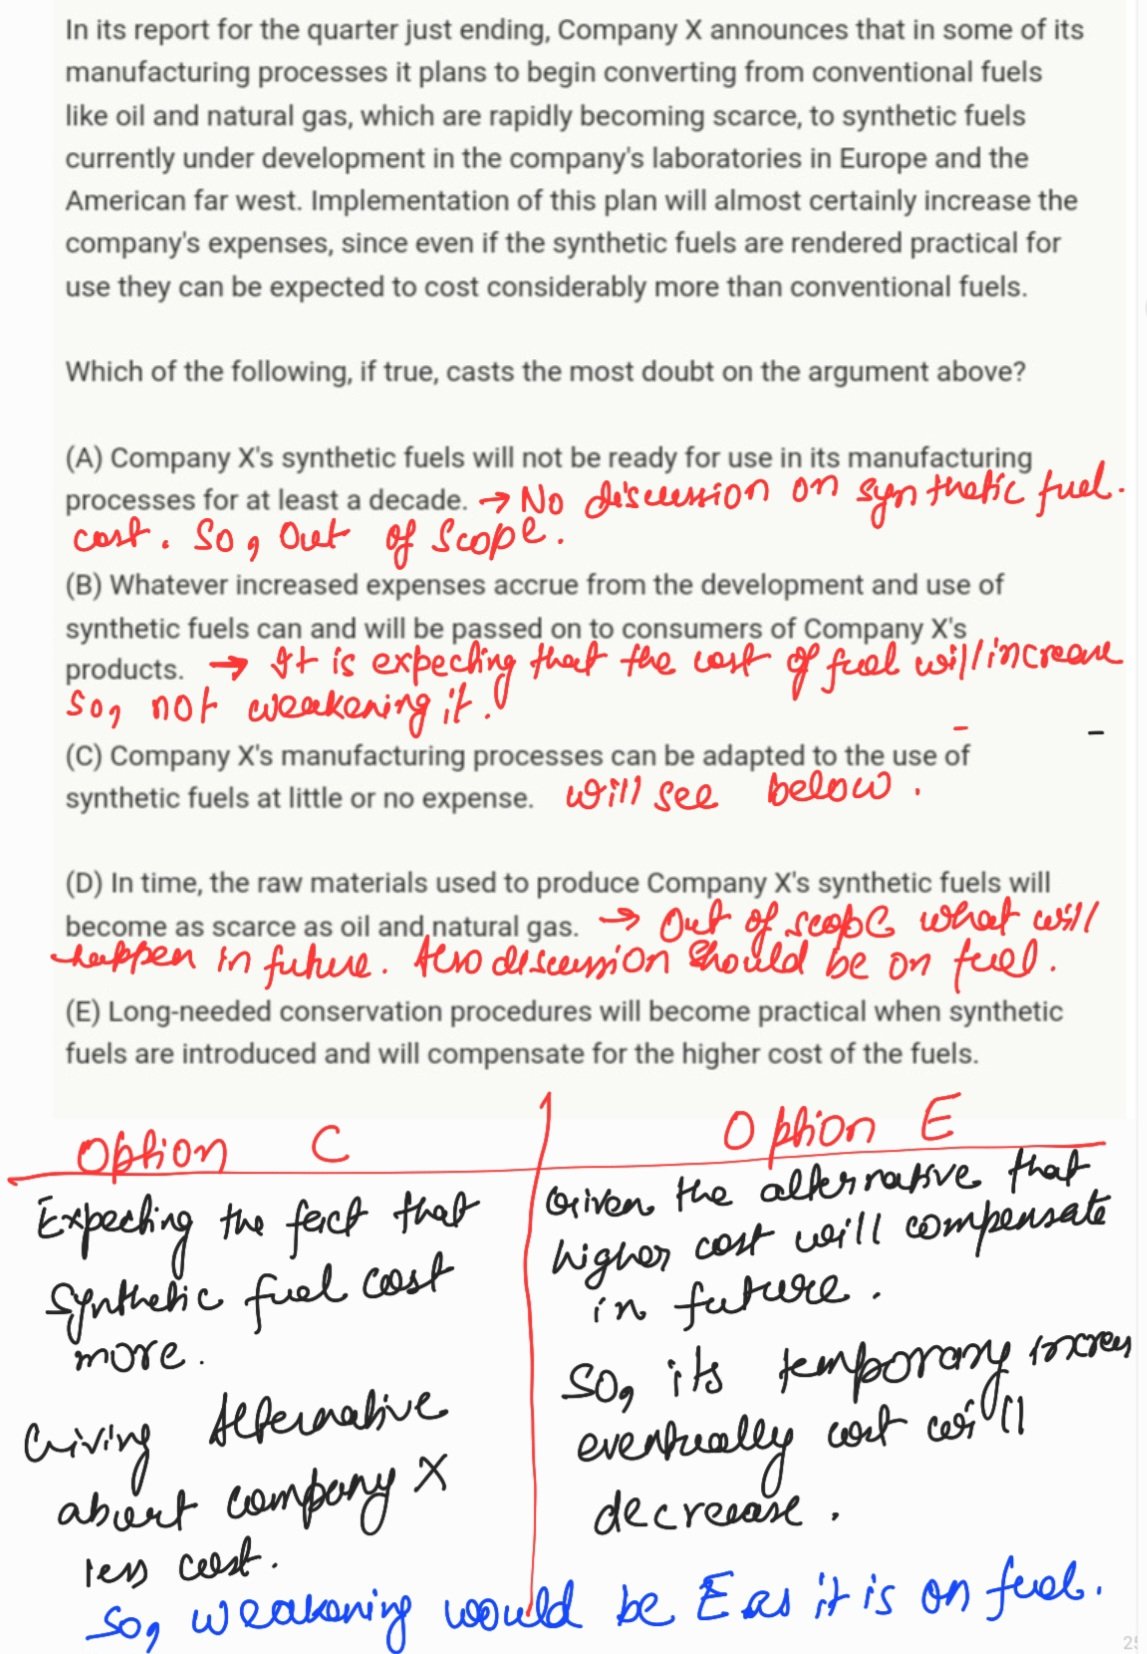 In its report for the quarter just ending, Company X announces that in some of its
manufacturing processes it plans to begin converting from conventional fuels
like oil and natural gas, which are rapidly becoming scarce, to synthetic fuels
currently under development in the company's laboratories in Europe and the
American far west. Implementation of this plan will almost certainly increase the
company's expenses, since even if the synthetic fuels are rendered practical for
use they can be expected to cost considerably more than conventional fuels.
Which of the following, if true, casts the most doubt on the argument above?
(A) Company X's synthetic fuels will not be ready for use in its manufacturing
processes for at least a decade. → No discussion on synthetic fuel.
cost. So, Out of Scope.
(B) Whatever increased expenses accrue from the development and use of
synthetic fuels can and will be passed on to consumers of Company X's
products. → It is expecting that the cost of fuel will increase
So, not weakening it.
(C) Company X's manufacturing processes can be adapted to the use of
synthetic fuels at little or no expense. will see below.
(D) In time, the raw materials used to produce Company X's synthetic fuels will
become as scarce as oil and natural gas. → Out of scope what will
happen in future. Also discussion should be on fuel.
(E) Long-needed conservation procedures will become practical when synthetic
fuels are introduced and will compensate for the higher cost of the fuels.
Option C
Expecting the fact that
Synthetic fuel cost
more.
Giving Alternative
about company X
less cost.
Option E
Given the alternative that
higher cost will compensate
in future.
So, its temporary increas
eventually cost will
decrease.
So, weakening would be E as it is on fuel.